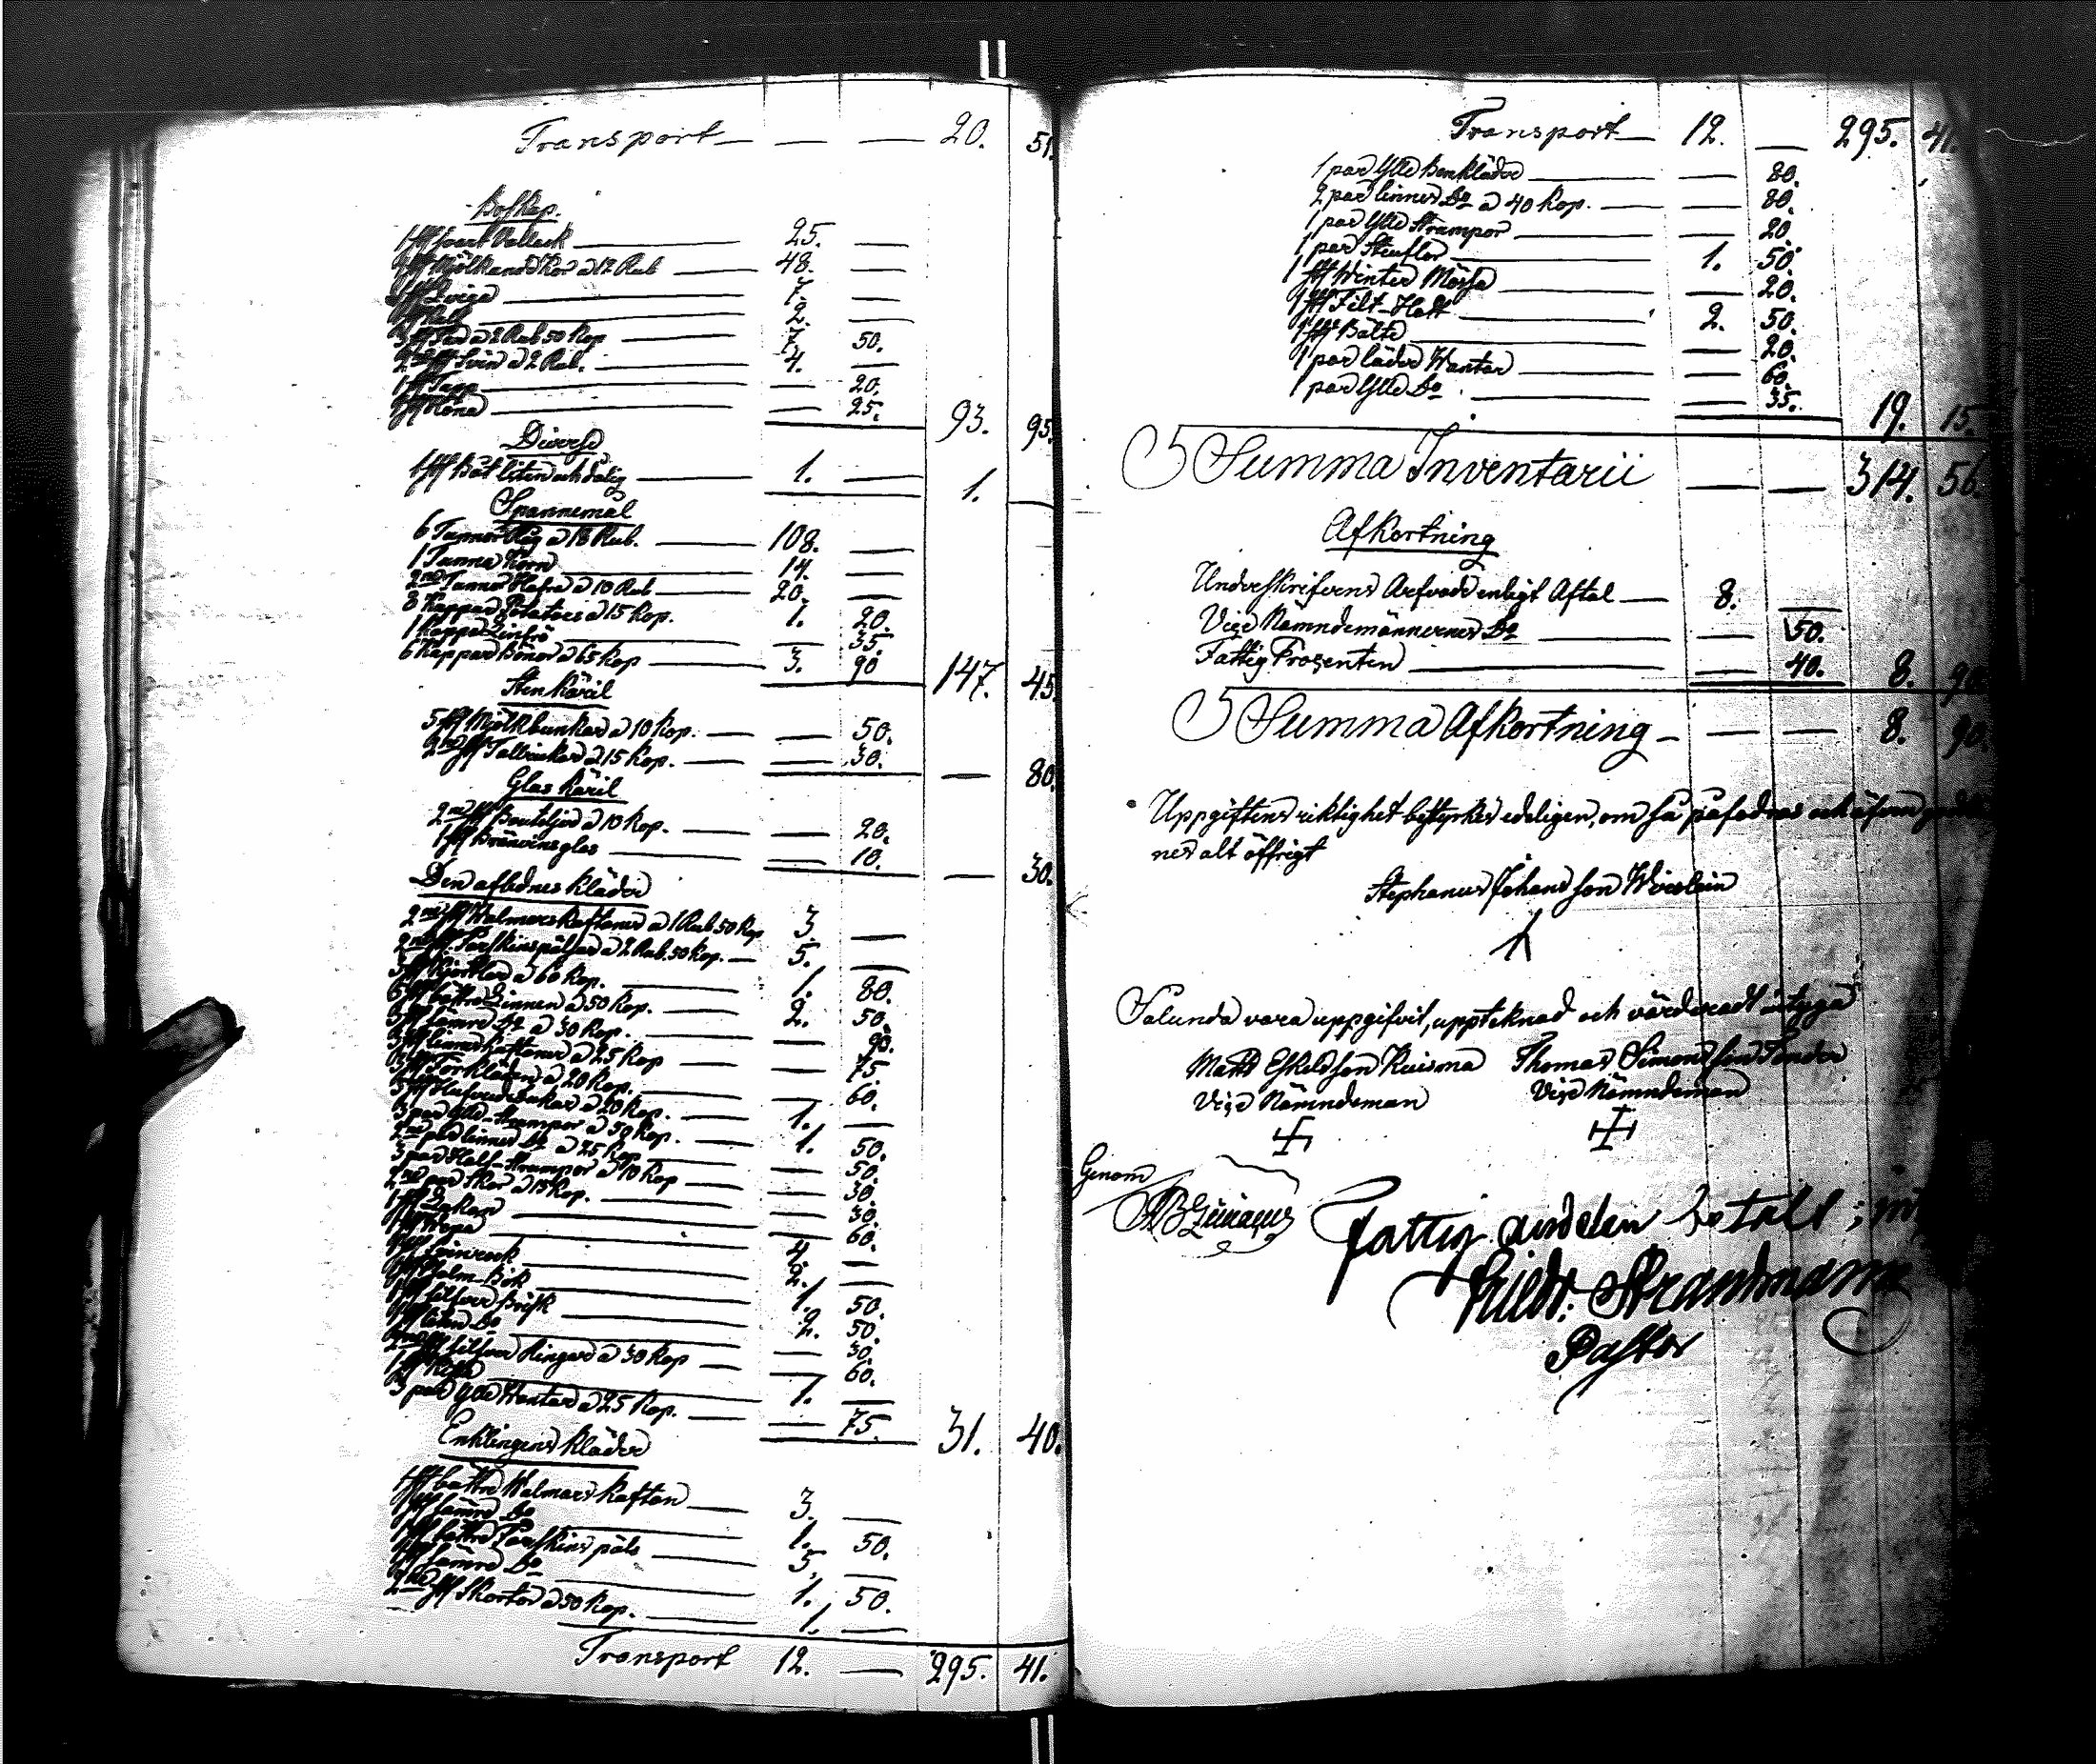 Transport — — — 20. 51.
Boskap.
1 st svart Vallack — 25. —
4 st Mjölkande Kor a 12 Rub — 48. —
1 st Qviga — 7. —
1 st Kalf — 2. —
3 st Får a 2 Rub 50 Kop — 7. 50.
2ne st Svin a 2 Rub. — 4. —
1 st Tupp — — 20.
1 st Höna — — 25. 93. 95.
Diverse
1 st Båt liten och dålig — 1. — 1. —
Spannemål
6 Tunnor Råg a 18 Rub. — 108. —
1 Tunna Korn — 14. —
2ne Tunnor Hafra a 10 Rub — 20. —
8 Kappar Potatoes a 15 Kop. 1. 20.
1 Kappe Linfrö — — 35.
6 Kappar Bönor a 65 Kop — 3. 90 147. 45.
Sten Käril
5 st Mjölkbunkar a 10 Kop. — — 50.
2ne st Talrickar a 15 Kop. — — 30. — 80.
Glas Käril
2ne st Bouteljer a 10 Kop. — — 20.
1 st Bränvinsglas — — 10. — 30.
Den aflednes kläder
2ne st Walmars Kaftaner a 1 Rub 50 Kop 3 —
2ne st Fårskinspälsar a 2 Rub. 50 Kop. — 5. —
3 st Kjortlar a 60 Kop. — 1. 80.
5 st bättre Linnen a 50 Kop. — 2. 50.
3 st sämre Do a 30 Kop. — — 90.
3 st linnes Kaftaner a 25 Kop — — 75.
3 st Förkläden a 20 Kop. — — 60.
5 st Hufvuddukar a 20 Kop. — 1. —
3 par Ylle Strumpor a 50 Kop. — 1. 50.
2ne par linnes Do a 25 Kop — — 50.
3 par Half-Strumpor a 10 Kop — — 30.
2ne par Skor a 15 Kop. — — 30.
1 st Lakan — — 60.
1 st — 4. —
1 st — 2. —
1 st Psalm-Bok — 1. 50.
1 st silfver Brisk — 2. 50.
1 st liten Do — — 30.
2ne st silfver Ringar a 30 Kop — — 60.
1 st — 1. —
3 par Ylle Wantar a 25 Kop. — — 75. 31. 40.
Enklingens kläder
1 st bättre Walmars Kaftan — 3. —
1 st sämre Do — 1. 50.
1 st bättre Fårskins päls — 5. —
1 st sämre Do — 1. 50.
2ne st Skortor a 50 Kop. — 1. —
Transport 12. — 295. 41.
Transport — 12. — 295. 41.
1 par Ylle Benkläder — — 80.
2 par linnes Do a 40 Kop. — — 80.
1 par Ylle Strumpor — — 20
1 par Stöflor — 1. 50.
1 st Winter Mössa — — 20.
1 st Filt-Hatt — 2. 50.
1 st Bälte — — 20.
1 par läder Wantar — — 60.
1 par Ylle Do — — 35. 19. 15.
Summa Inventarii — — 314. 56.
Afkortning
Underskrifvens Arfvode enligt Aftal — 8. —
Viçe Nämndemännernes Do — — 50.
Fattig Proçenten — — 40. 8. 90.
Summa Afkortning — — — 8. 90.
Uppgiftens riktighet bestyrkes edeligen, om så påfodras och äfven
nes alt öffrigt
Stephanus Johansson
Sålunda vara uppgifvit, upptecknad och värderadt intyga
Matts Eskelsson Kuisma Thomas Simonsson
Viçe Nämndeman Viçe Nämndeman
Genom
Fattig andelen betalt;
Strandmann
Pastor